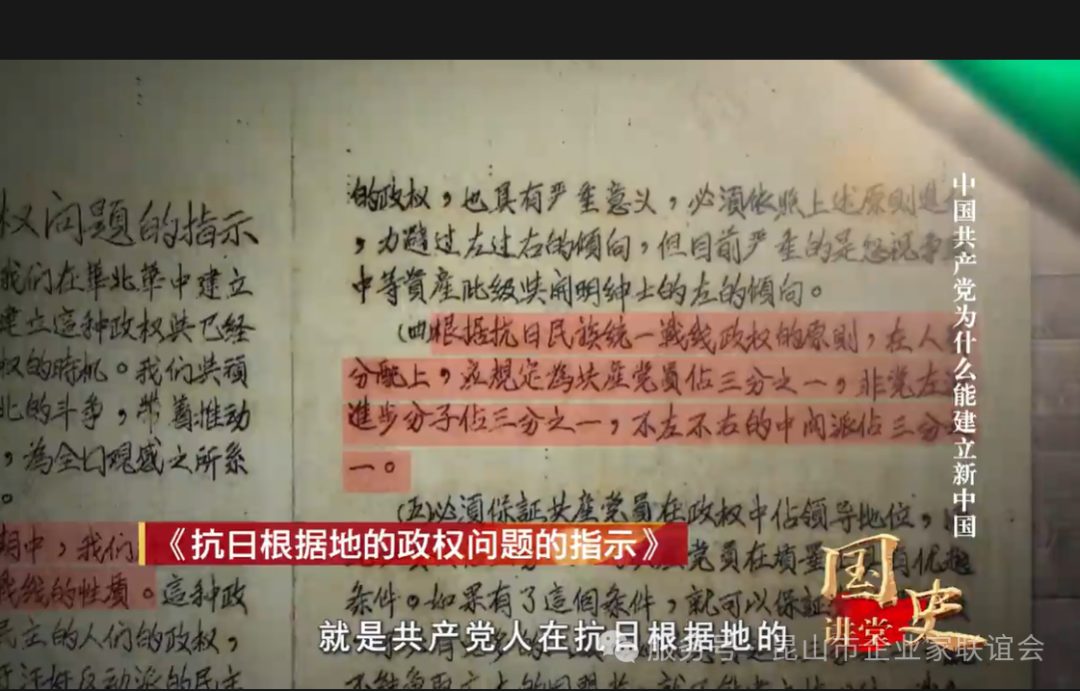 权问题的指示
我们在華北華中建立
建立這种政权与已经
权的时机。我们共须
北的斗争，带着推动
，為全们观感之所系
。
期中，我们
我线的性质。這种政
民主的人们的政权，
的政权，也具有严重意义，必须依照上述原则進
，力避过左过右的倾向，但目前严重的是忽视争
中等資產阶级与开明紳士的左的倾向。
(四)根据抗日民族統一戰线政权的原则，在人
分配上，应规定為共產党員佔三分之一，非党左
進步分子佔三分之一，不左不右的中间派佔三分之
一。
(五)必须保証共產党員在政权中佔领导地位，
党員在质量上具有优越
条件。如果有了這個条件，就可以保証
《抗日根据地的政权问题的指示》
就是共产党人在抗日根据地的
中国共产党为什么能建立新中国
国史讲堂
服务号 昆山市企业家联谊会